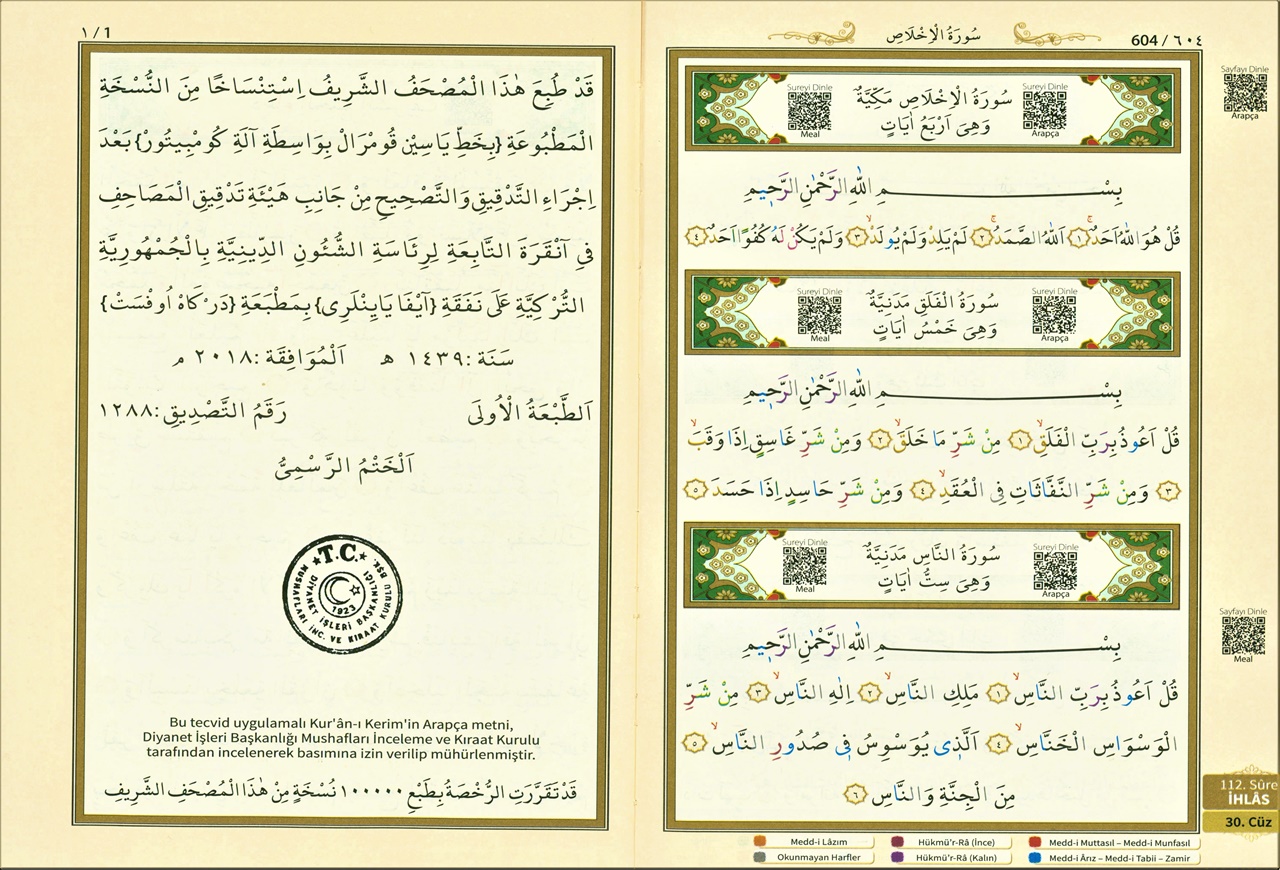 604 / ٦٠٤
سُورَةُ الْاِخْلَاصِ
Sayfayı Dinle
Arapça
Sureyi Dinle
Meal
سُورَةُ الْاِخْلَاصِ مَكِّيَّةٌ
وَهِىَ اَرْبَعُ اٰيَاتٍ
Sureyi Dinle
Arapça
بِسْمِ اللّٰهِ الرَّحْمٰنِ الرَّحٖيمِ
قُلْ هُوَ اللّٰهُ اَحَدٌۚ ﴿١﴾ اَللّٰهُ الصَّمَدُۚ ﴿٢﴾ لَمْ يَلِدْ وَلَمْ يُولَدْۙ ﴿٣﴾ وَلَمْ يَكُنْ لَهُ كُفُوًا اَحَدٌ ﴿٤﴾
Sureyi Dinle
Meal
سُورَةُ الْفَلَقِ مَدَنِيَّةٌ
وَهِىَ خَمْسُ اٰيَاتٍ
Sureyi Dinle
Arapça
بِسْمِ اللّٰهِ الرَّحْمٰنِ الرَّحٖيمِ
قُلْ اَعُوذُ بِرَبِّ الْفَلَقِۙ ﴿١﴾ مِنْ شَرِّ مَا خَلَقَۙ ﴿٢﴾ وَمِنْ شَرِّ غَاسِقٍ اِذَا وَقَبَۙ
﴿٣﴾ وَمِنْ شَرِّ النَّفَّاثَاتِ فِى الْعُقَدِۙ ﴿٤﴾ وَمِنْ شَرِّ حَاسِدٍ اِذَا حَسَدَ ﴿٥﴾
Sureyi Dinle
Meal
سُورَةُ النَّاسِ مَدَنِيَّةٌ
وَهِىَ سِتُّ اٰيَاتٍ
Sureyi Dinle
Arapça
بِسْمِ اللّٰهِ الرَّحْمٰنِ الرَّحٖيمِ
قُلْ اَعُوذُ بِرَبِّ النَّاسِۙ ﴿١﴾ مَلِكِ النَّاسِۙ ﴿٢﴾ اِلٰهِ النَّاسِۙ ﴿٣﴾ مِنْ شَرِّ
الْوَسْوَاسِ الْخَنَّاسِۙ ﴿٤﴾ اَلَّذٖى يُوَسْوِسُ فٖى صُدُورِ النَّاسِۙ ﴿٥﴾
مِنَ الْجِنَّةِ وَالنَّاسِ ﴿٦﴾
Sayfayı Dinle
Meal
112. Sûre
İHLÂS
30. Cüz
Medd-i Lâzım
Hükmü'r-Râ (İnce)
Medd-i Muttasıl – Medd-i Munfasıl
Okunmayan Harfler
Hükmü'r-Râ (Kalın)
Medd-i Ârız – Medd-i Tabii – Zamir
١ / 1
قَدْ طُبِعَ هٰذَا الْمُصْحَفُ الشَّرِيفُ اِسْتِنْسَاخًا مِنَ النُّسْخَةِ
الْمَطْبُوعَةِ {بِخَطِّ يَاسِيْن قُومْرَالْ بِوَاسِطَةِ آلَةِ كُومْبِيتُورْ} بَعْدَ
اِجْرَاءِ التَّدْقِيقِ وَالتَّصْحِيحِ مِنْ جَانِبِ هَيْئَةِ تَدْقِيقِ الْمَصَاحِفِ
فِى آنْقَرَةَ التَّابِعَةِ لِرِئَاسَةِ الشُّئُونِ الدِّينِيَّةِ بِالْجُمْهُورِيَّةِ
التُّرْكِيَّةِ عَلَى نَفَقَةِ {آيْفَا يَايِنْلَرِى} بِمَطْبَعَةِ {دَرْكَاهْ اُوفْسَتْ}
سَنَة : ١٤٣٩ هـ اَلْمُوَافِقَة : ٢٠١٨ م
اَلطَّبْعَةُ الْاُولَى رَقَمُ التَّصْدِيقِ : ١٢٨٨
اَلْخَتْمُ الرَّسْمِىُّ
T.C.
DİYANET İŞLERİ BAŞKANLIĞI
MUSHAFLARI İNC. VE KIRAAT KURULU BŞK.
1923
Bu tecvid uygulamalı Kur'ân-ı Kerim'in Arapça metni,
Diyanet İşleri Başkanlığı Mushafları İnceleme ve Kıraat Kurulu
tarafından incelenerek basımına izin verilip mühürlenmiştir.
قَدْ تَقَرَّرَتِ الرُّخْصَةُ بِطَبْعِ ١٠٠٠٠٠ نُسْخَةٍ مِنْ هٰذَا الْمُصْحَفِ الشَّرِيفِ